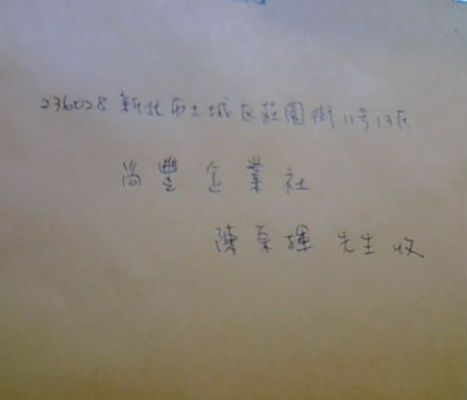 236028 新北市土城区莊園街11号13F
尚豐企業社
陳 先生收